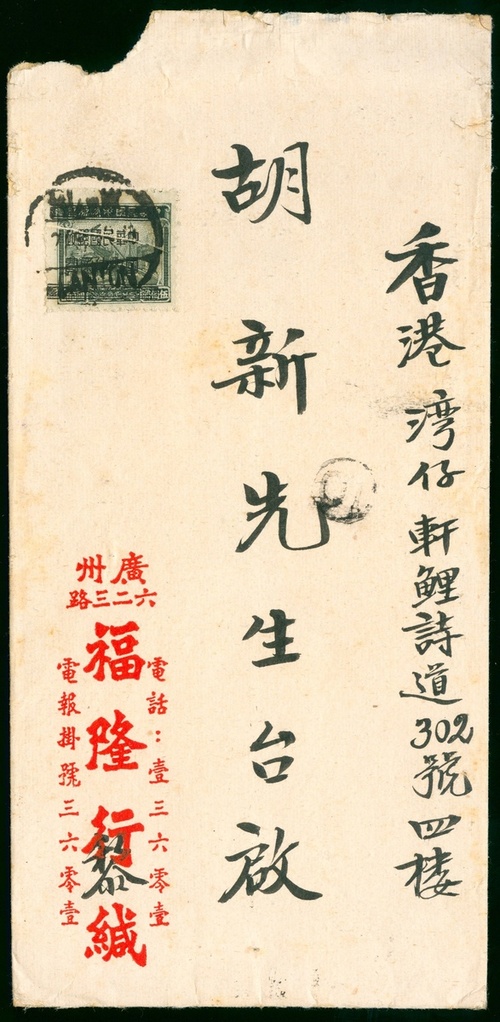 香港湾仔軒鯉詩道302號四楼
胡新先生台啟
廣州
六二三路
電話：壹三六零壹
福隆行緘
黎
電報掛號三六零壹
CANTON